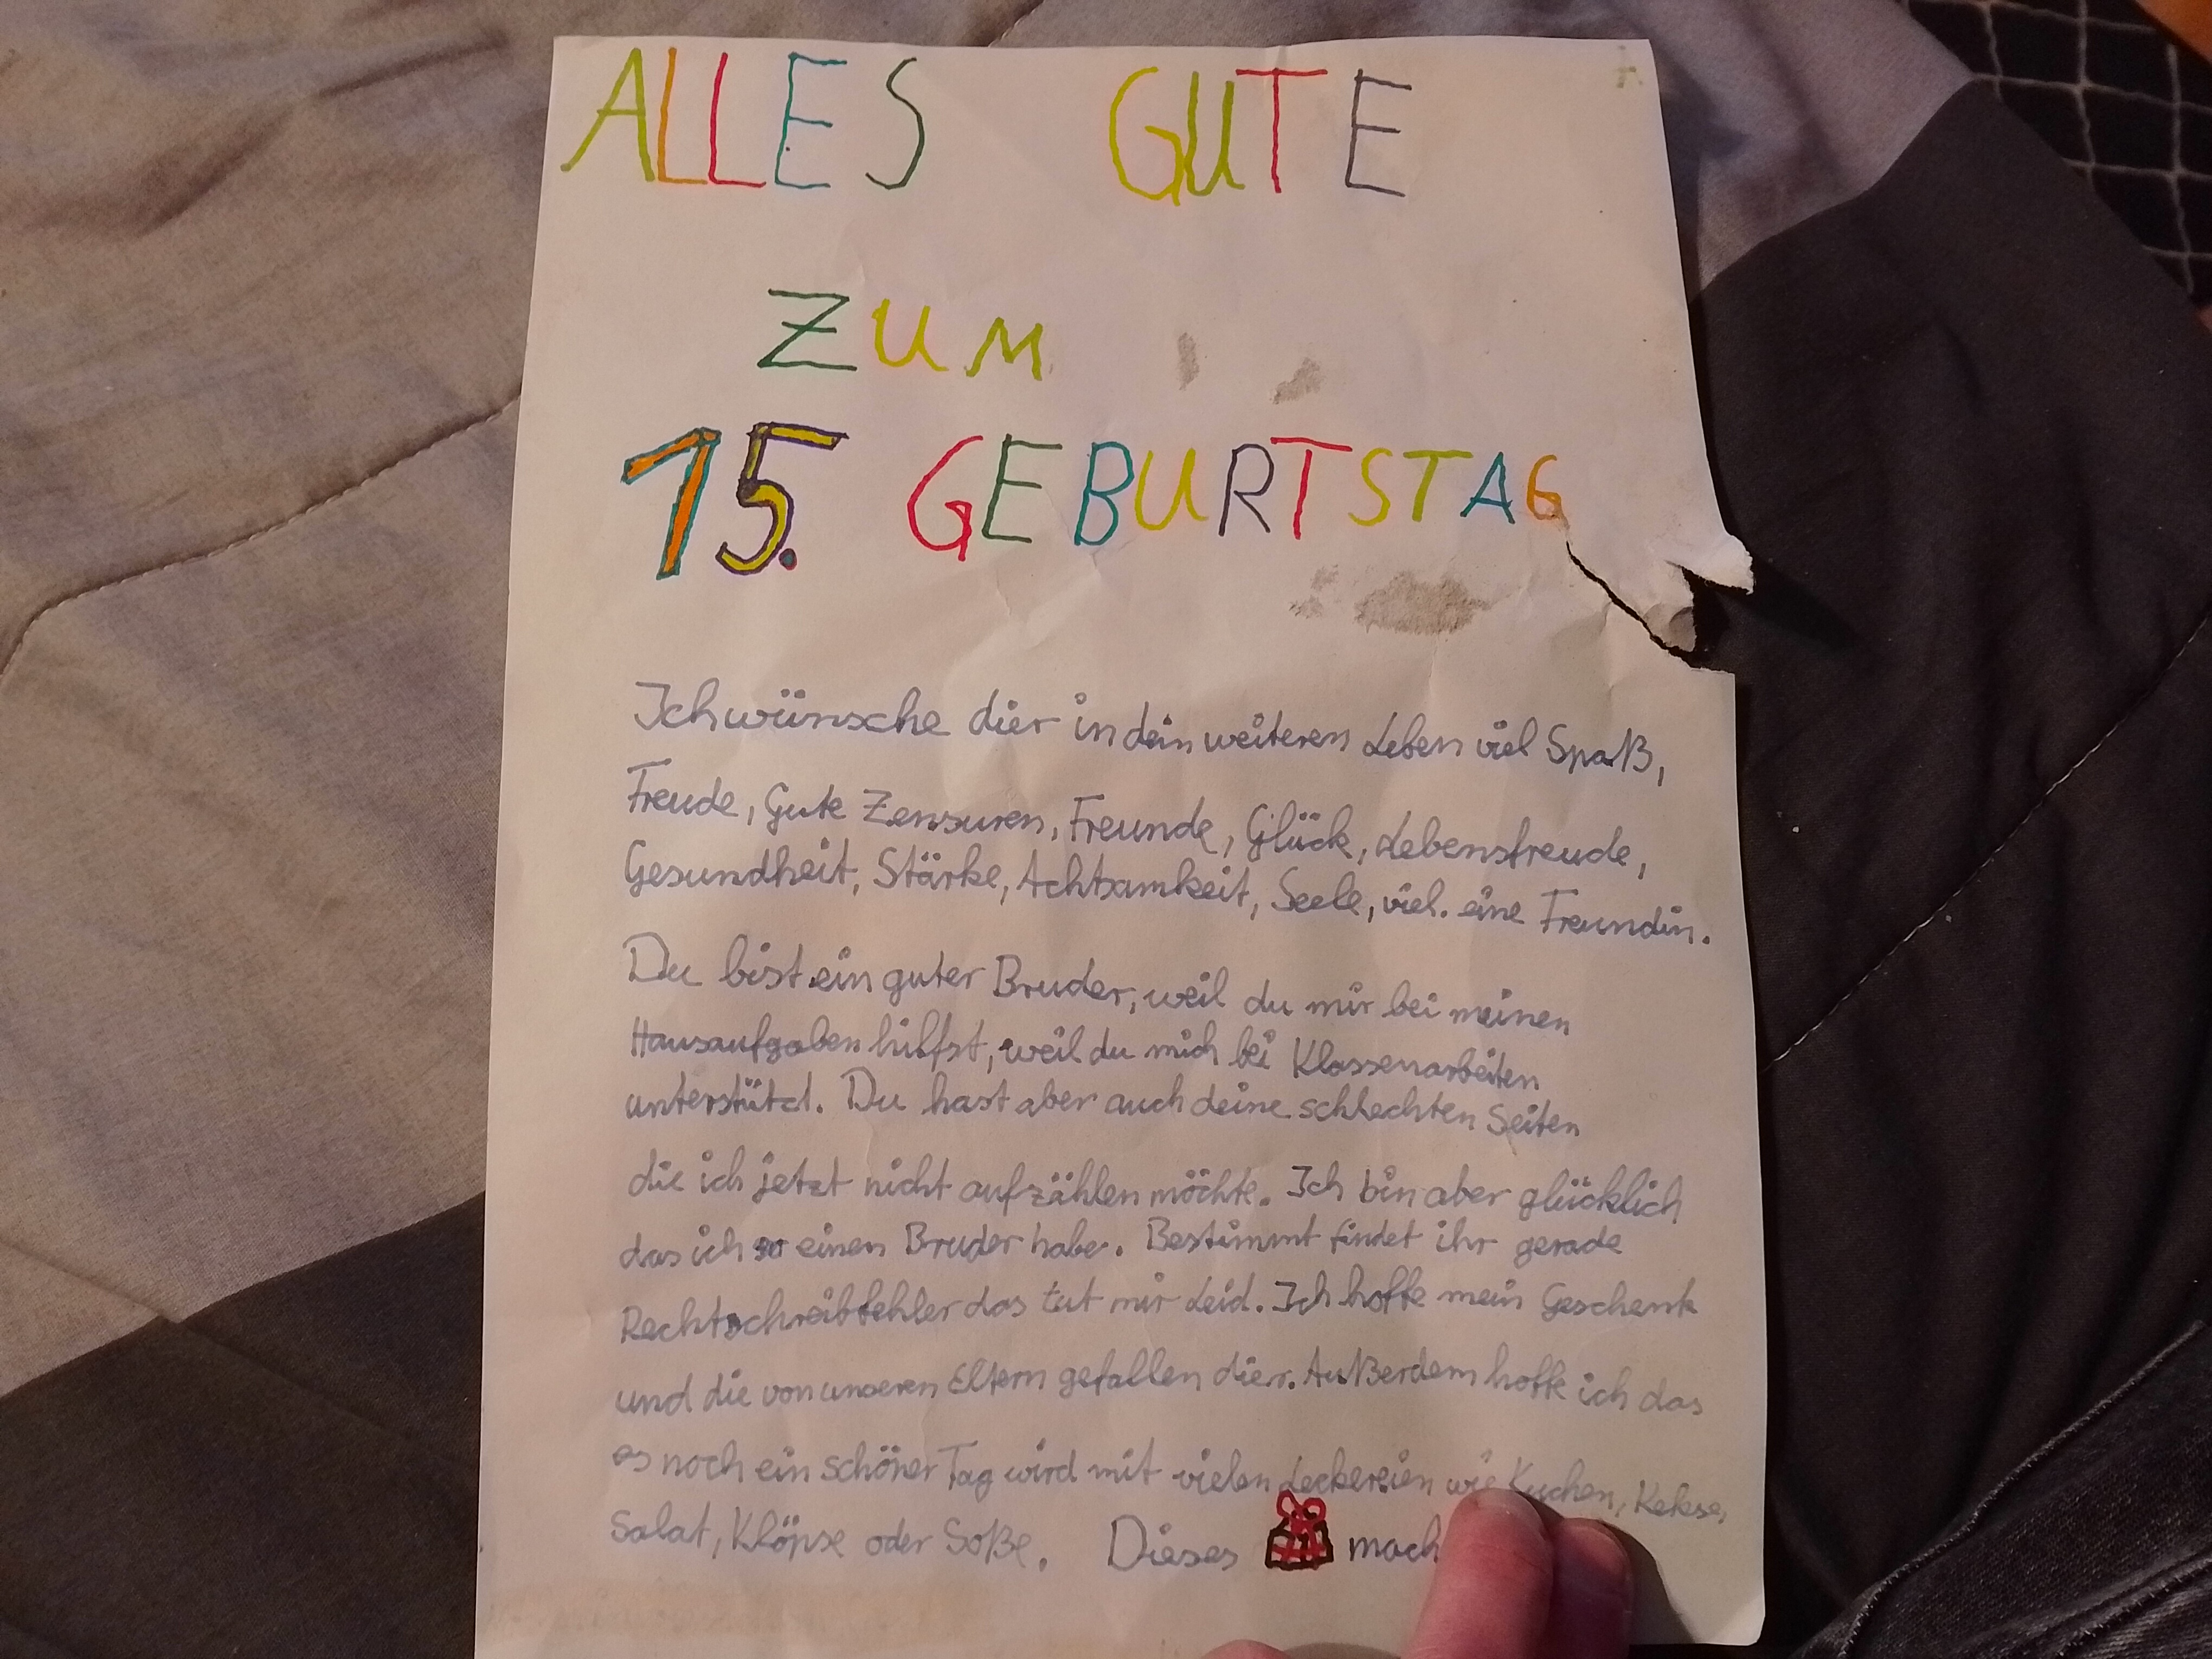 ALLES GUTE
ZUM
15. GEBURTSTAG
Ich wünsche dier in dein weiteren Leben viel Spaß,
Freude, Gute Zensuren, Freunde, Glück, Lebensfreude,
Gesundheit, Stärke, Achtsamkeit, Seele, viel. eine Freundin.
Du bist ein guter Bruder, weil du mir bei meinen
Hausaufgaben hilfst, weil du mich bei Klassenarbeiten
unterstützt. Du hast aber auch deine schlechten Seiten
die ich jetzt nicht aufzählen möchte. Ich bin aber glücklich
das ich so einen Bruder habe. Bestimmt findet ihr gerade
Rechtschreibfehler das tut mir Leid. Ich hoffe mein Geschenk
und die von unseren Eltern gefallen dier. Außerdem hoffe ich das
es noch ein schöner Tag wird mit vielen Leckereien wie Kuchen, Kekse,
Salat, Klöpse oder Soße. Dieses mach